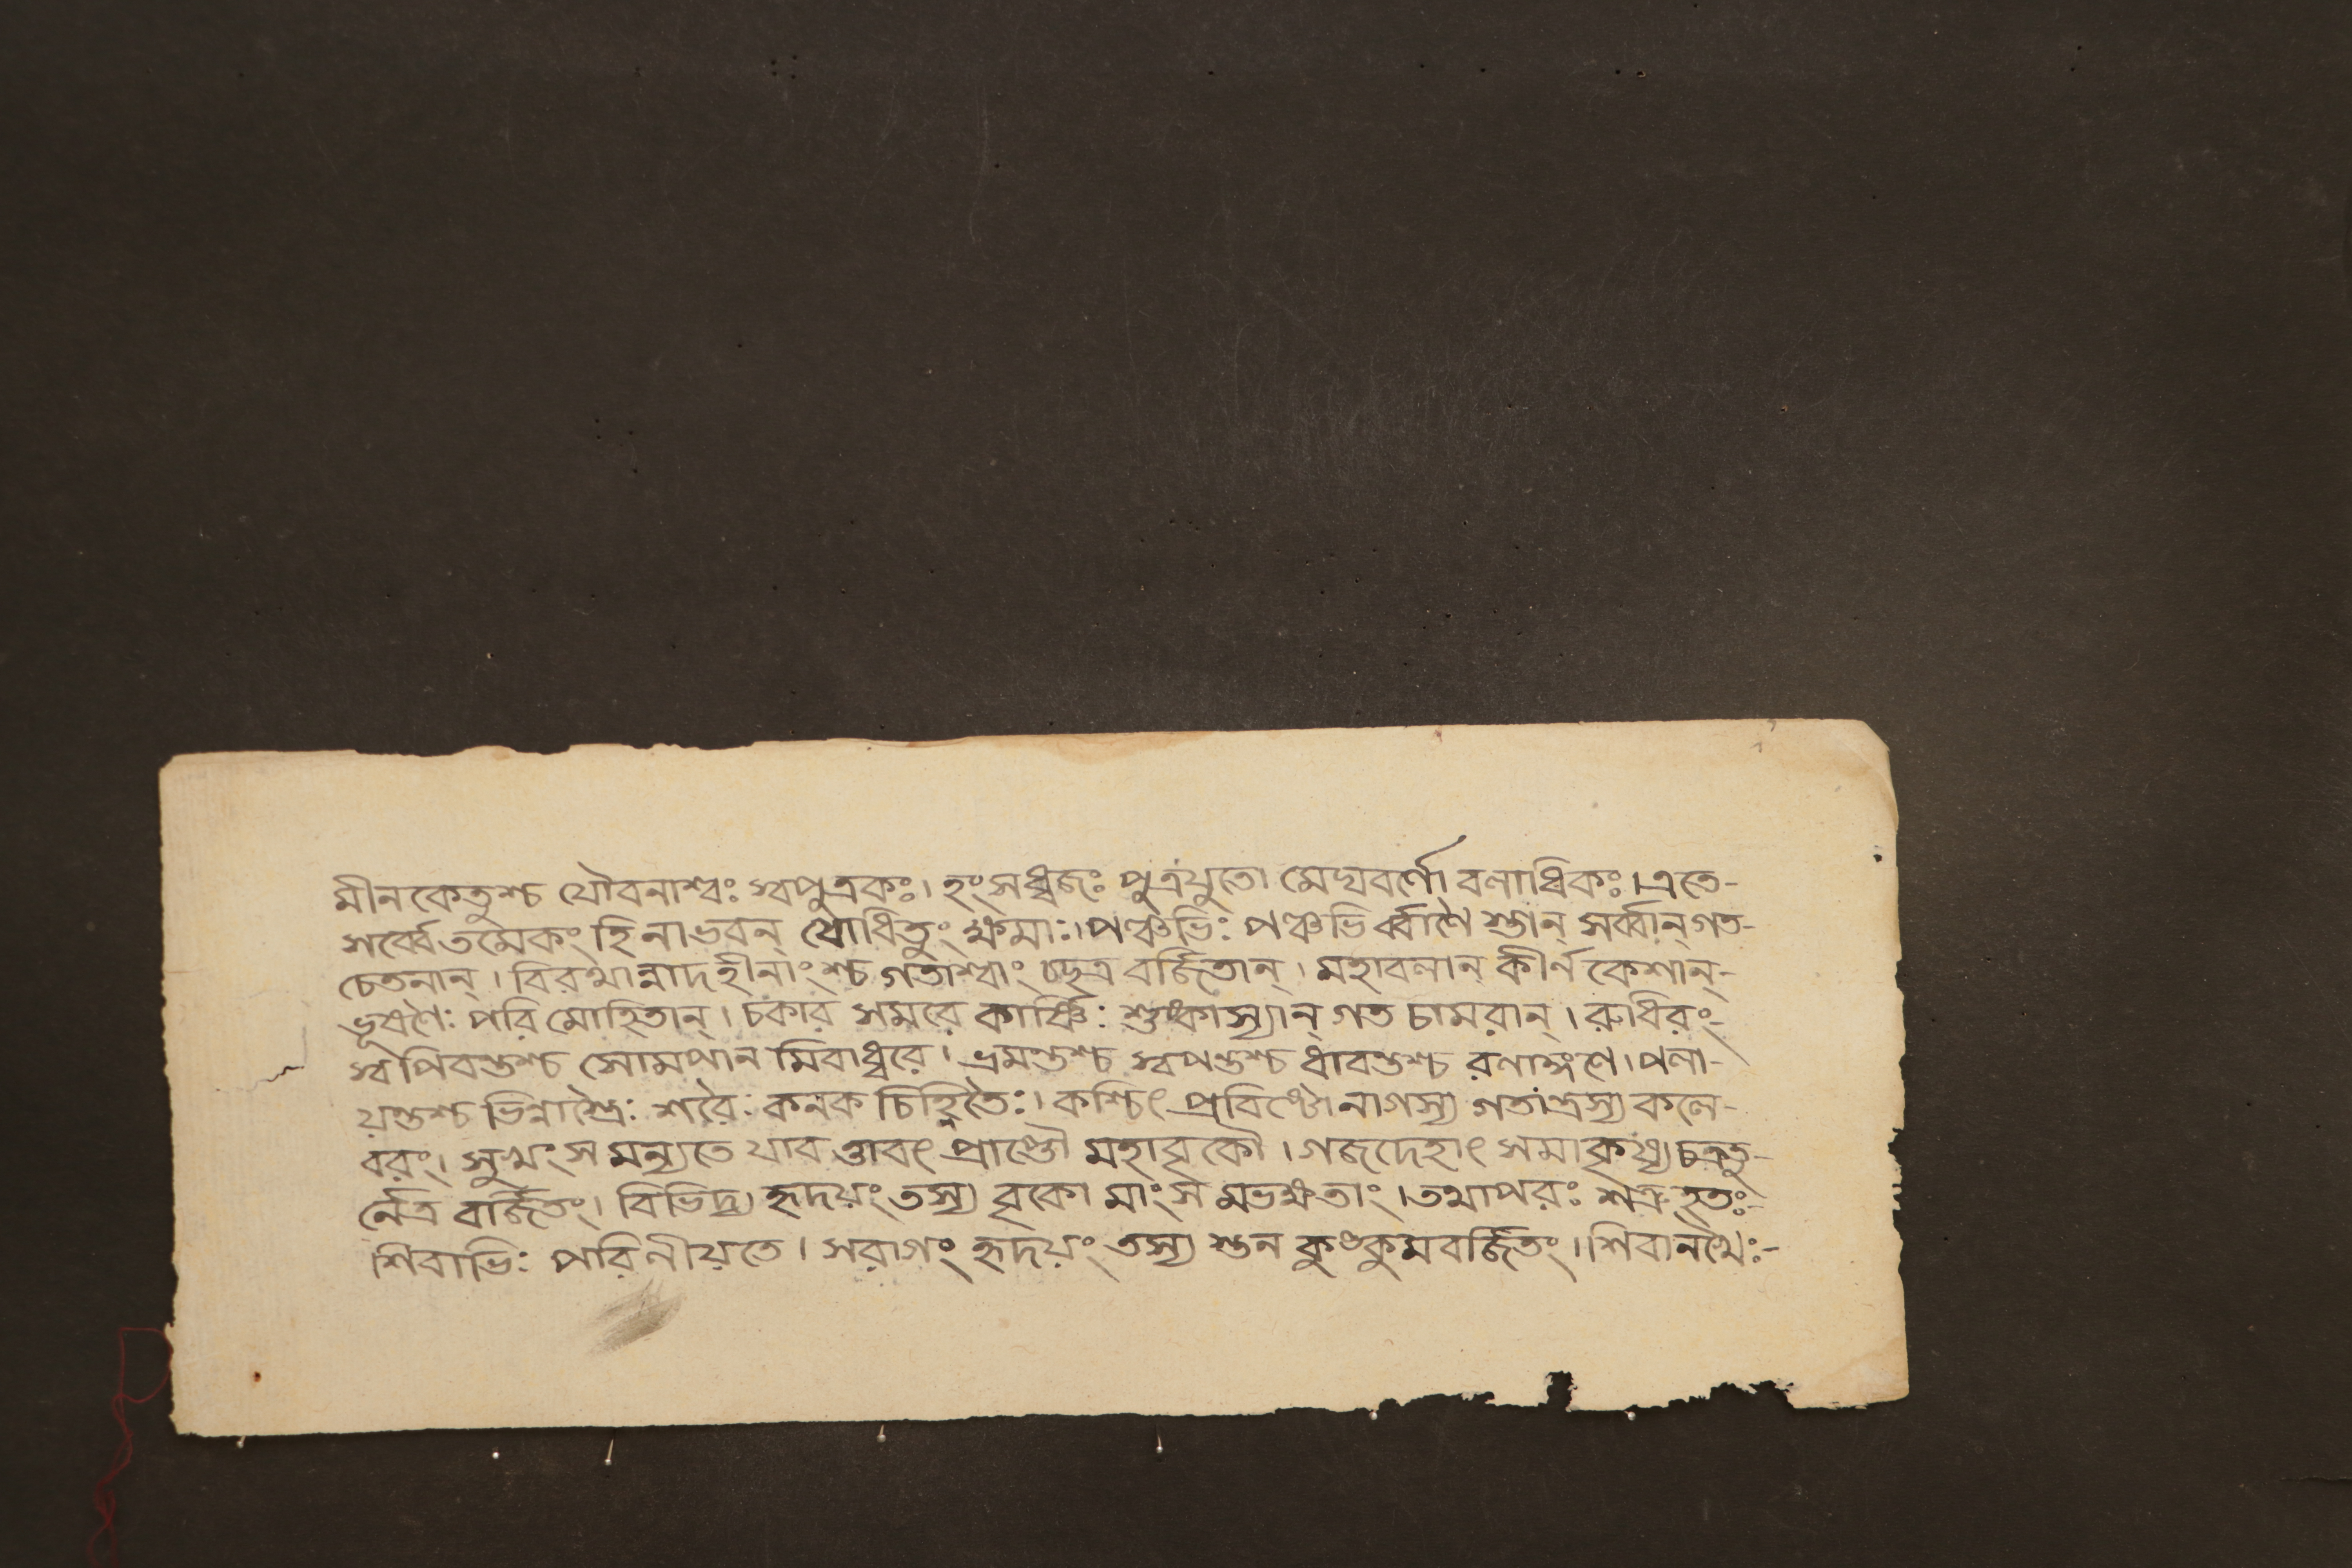 মীনকেতুশ্চ যৌবনাশ্বঃ স্বপুত্রকঃ। হংসধ্বজঃ পুত্রযুতো মেঘবর্ণো বলাধিকঃ। এতে-
সর্ব্বে তমেকং হি নাভবন্ যোধিতুং ক্ষমাঃ। পঞ্চভিঃ পঞ্চভির্ব্বাণৈ স্তান্ সর্ব্বান্ গত-
চেতনান্। বিরথান্নাদহীনাংশ্চ গতাশ্বাং চ্ছত্র বর্জিতান্। মহাবলান্ কীর্ন কেশান্-
ভূষণৈঃ পরি মোহিতান্। চকার সমরে কার্ষ্ণিঃ শুষ্কাস্যান্ গত চামরান্। রুধিরং-
স্ব পিবন্তশ্চ সোমপান মিবাধ্বরে। ভ্রমন্তশ্চ স্বপন্তশ্চ ধাবন্তশ্চ রণাঙ্গণে। পলা-
য়ন্তশ্চ ভিন্নাস্তৈঃ শরৈঃ কনক চিহ্নিতৈঃ। কশ্চিৎ প্রবিষ্টো নাগস্য গতান্ত্রস্য কলে-
বরং। সুখং স মন্যতে যাব ত্তাবৎ প্রাপ্তৌ মহাবৃকৌ। গজদেহাৎ সমাকৃষ্য চক্রতু-
র্নেত্র বর্জিতং। বিভিদ্য হৃদয়ং তস্য বৃকো মাংস মভক্ষতাং। তথাপরঃ শত্রু হতঃ-
শিবাভিঃ পরিনীয়তে। সরাগং হৃদয়ং তস্য স্তন কুঙ্কুমবর্জিতং। শিবানখৈঃ-